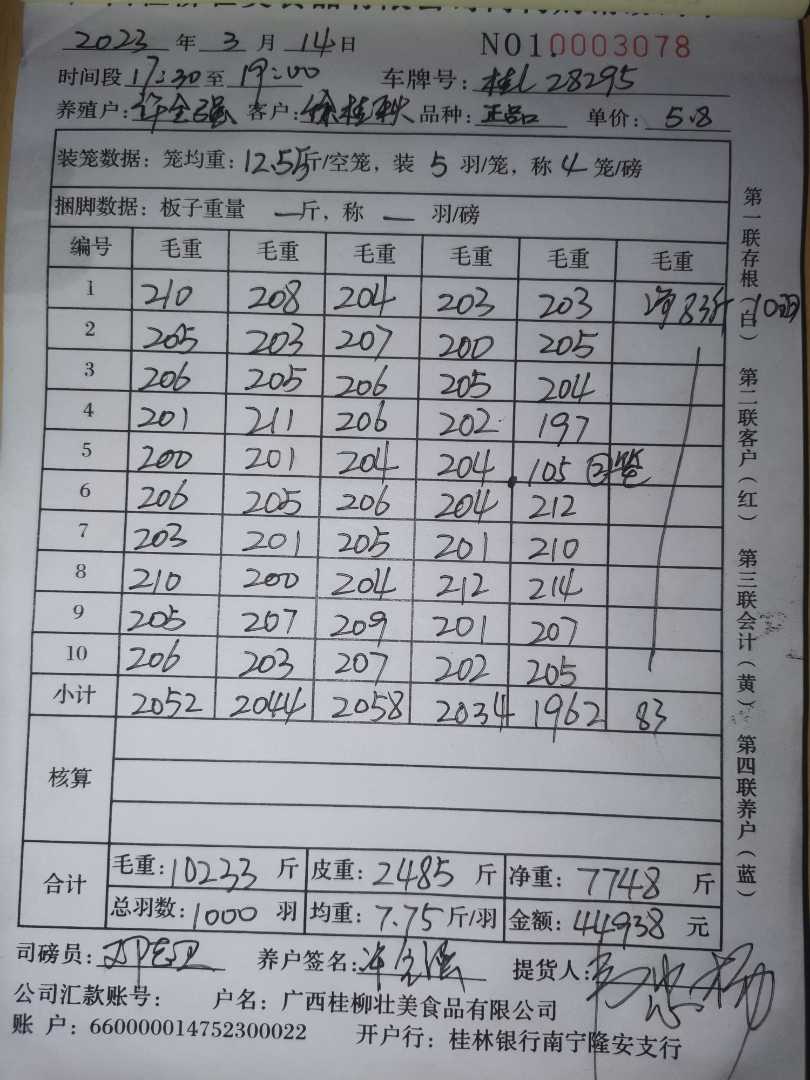 2023 年 3 月 14 日 NO1.0003078
时间段 17:30 至 19:00 车牌号: 桂L28295
养殖户: 许全强 客户: 徐桂秋 品种: 正品 单价: 5.8
装笼数据: 笼均重: 12.5斤/空笼, 装 5 羽/笼, 称 4 笼/磅
捆脚数据: 板子重量 — 斤, 称 — 羽/磅
编号 毛重 毛重 毛重 毛重 毛重 毛重
1 210 208 204 203 203 净83斤(10羽)
2 205 203 207 200 205
3 206 205 206 205 204
4 201 211 206 202 197
5 200 201 204 204 105 ②笼
6 206 205 206 204 212
7 203 201 205 201 210
8 210 200 204 212 214
9 205 207 209 201 207
10 206 203 207 202 205
小计 2052 2044 2058 2034 1962 83
核算
合计 毛重: 10233 斤 皮重: 2485 斤 净重: 7748 斤
总羽数: 1000 羽 均重: 7.75 斤/羽 金额: 44938 元
司磅员: 养户签名: 许全强 提货人:
公司汇款账号: 户名: 广西桂柳壮美食品有限公司
账 户: 660000014752300022 开户行: 桂林银行南宁隆安支行
第一联存根(白) 第二联客户(红) 第三联会计(黄) 第四联养户(蓝)